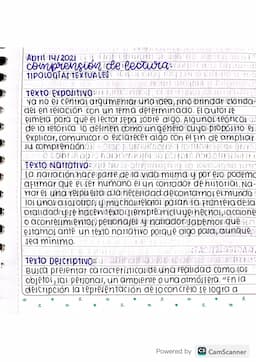 April 14/2021
comprensión de lectura:
TIPOLOGIAS TEXTUALES
TEXTO EXPOSITIVO:
Ya no es central argumentar una idea, sino brindar claridad
des en relación con un tema determinado. El autor se
esmera para que el lector sepa sobre algo. Algunos teóricos
de la retórica lo definen como un género cuyo propósito es
explicar, comunicar o esclarecer algo con el fin de ampliar
su comprensión.
TEXTO NARRATIVO:
La narración hace parte de la vida misma y por eso podemos
afirmar que el ser humano es un contador de historia. Na-
rrar es una respuesta a la necesidad de contarnos el mundo
los unos a los otros y muchos relatos pasan la frontera de la
oralidad y se hacen texto. Siempre incluye hechos, acciones
o acontecimientos, personajes y narrador. Sabemos que
estamos ante un texto narrativo porque algo pasa, aunque
sea mínimo.
TEXTO DESCRIPTIVO:
Busca presentar características de una realidad como los
objetos, las personas, un ambiente o una atmósfera. "En la
descripción la representación de lo concreto se logra a
Powered by CS CamScanner